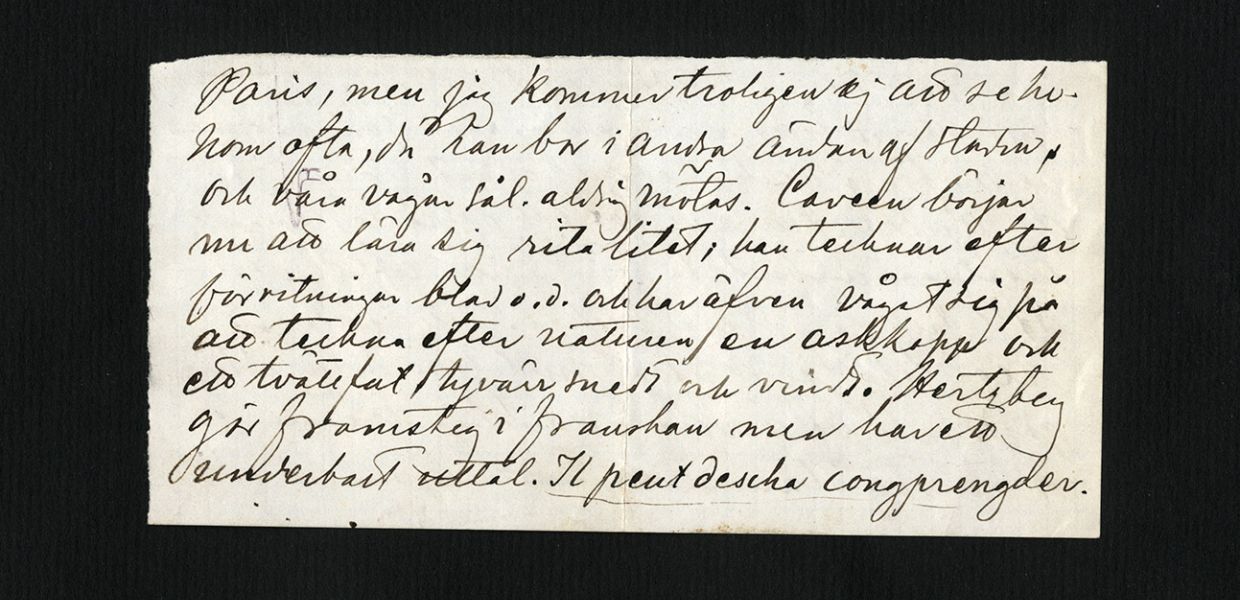 Paris, men jag kommer troligen ej att se ho-
nom ofta, då han bor i andra ändan af staden,
och våra vägar sål. aldrig mötas. Caveen börjar
nu att lära sig rita litet; han tecknar efter
förritningar blad o.d. och har äfven vågat sig på
att teckna efter naturen, en askkopp och
ett tvätefat, tyvärr snedt och vindt. Hertzberg
gör framsteg i franskan men har ett
underbart uttal. Il peut descha congprengder.